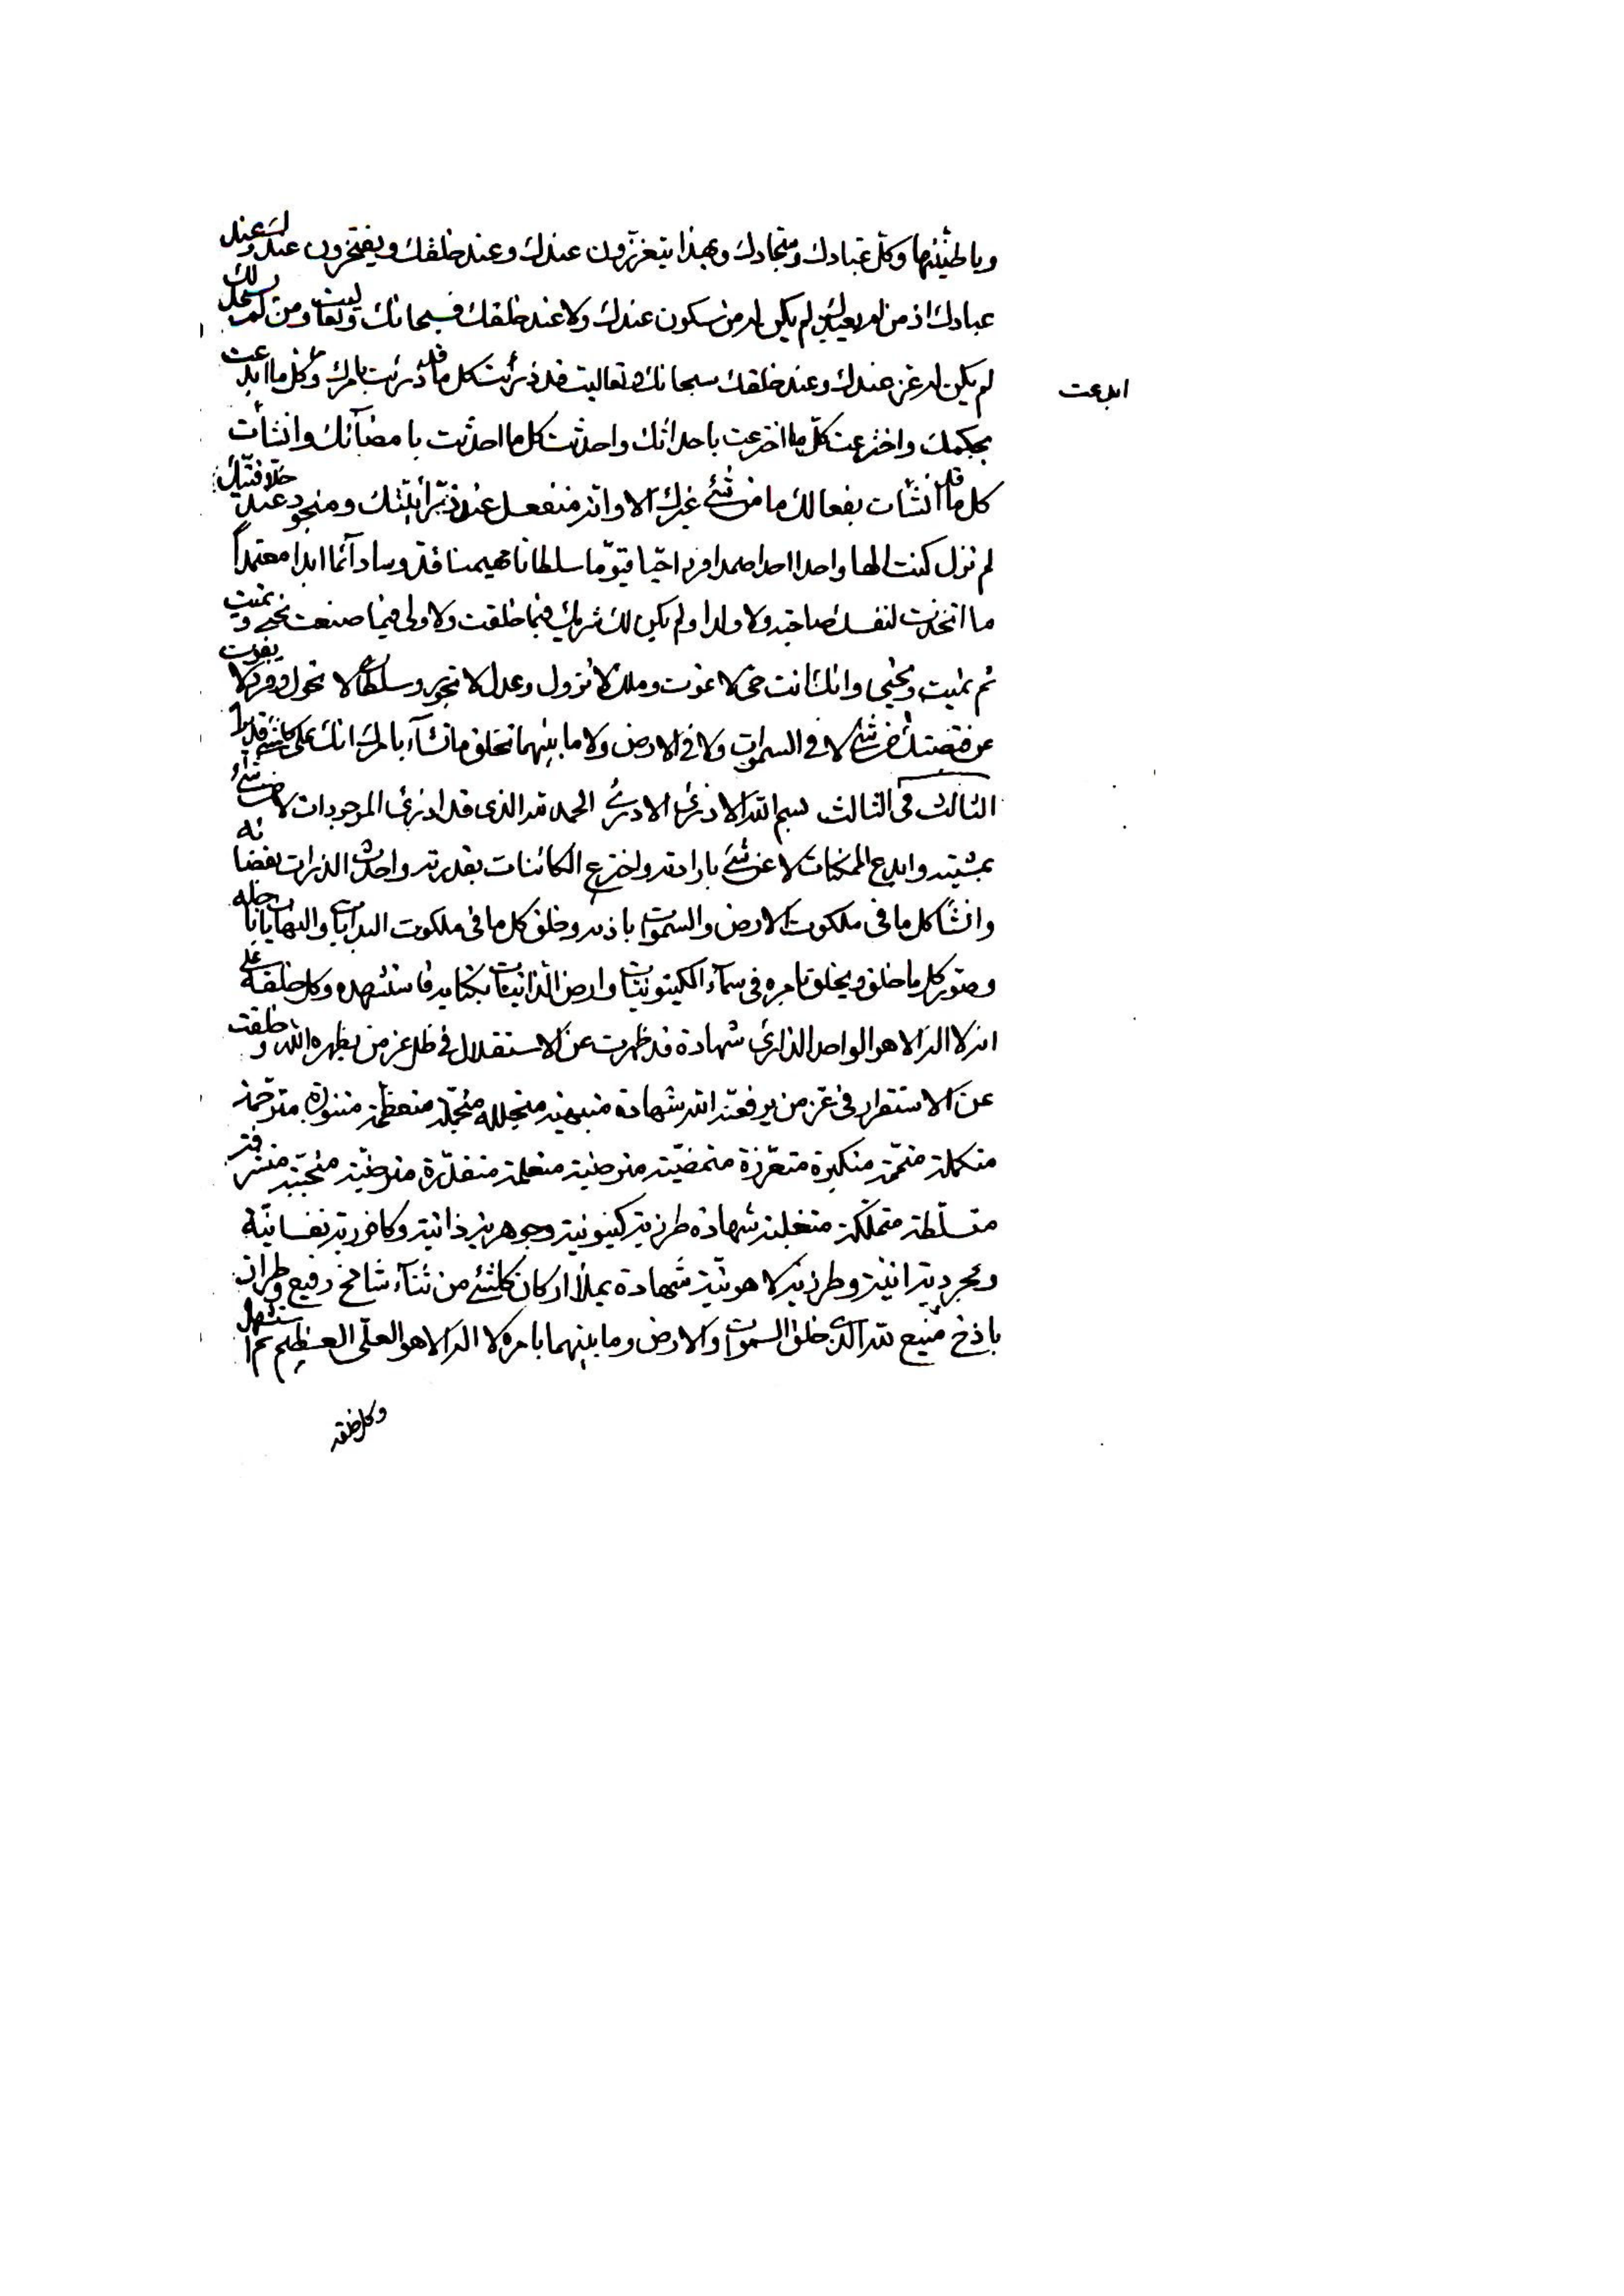 وباطنيتها وكل عبادك وسجادك وبهذا يتعززون عندك وعند خلقك ويفتخرون عندك وعند
عبادك اذ من لم يعبدك لم يكن له من سكون عندك ولا عند خلقك فسبحانك وتعاليت ومن لم يسجد لك
لم يكن له عز عندك وعند خلقك سبحانك وتعاليت قد ذرئت كل ما قد ذرئت بامرك وكل ما ابدعت
ابدعت
بحكمك واخترعت كل ما اخترعت باحداثك واحدثت كل ما احدثت بامضآئك وانشأت
كل ما قد انشأت بفعالك ما من شئ غيرك الا وانه منفعل عند ومنوجد عند
لم تزل كنت الها واحدا احدا صمدا فردا حيا قيوما سلطانا مهيمنا قدوسا دآئما ابدا معتمدا
ما اتخذت لنفسك صاحبة ولا ولدا ولم يكن لك شريك فيما خلقت ولا ولى فيما صنعت تحيى وتميت
ثم تميت وتحيى وانك انت حى لا تموت وملك لا تزول وعدل لا تجور وسلطان لا تحول وفرد لا يفوت
عن قبضتك من شئ لا فى السموات ولا فى الارض ولا ما بينهما تخلق ما تشآء بامرك انك على كلشئ قديرا
الثالث فى الثالث بسم الله الاذرئ الاذرئ الحمد لله الذى قد اذرئ الموجودات لا من شئ
بمشيته وابدع الممكنات لا عن شئ بارادته واخترع الكائنات بقدرته واحدث الذرات بقضائه
وانشأ كل ما فى ملكوت الارض والسموات باذنه وخلق كل ما فى ملكوت البدايات والنهايات باجله
وصور كل ما خلق ويخلق بامره فى سمآء الكينونيات وارض الذاتيات بكتابه فاستشهده وكل خلقه على
انه لا اله الا هو الواحد الذارئ شهادة قد ظهرت عن الاستقلال فى ظل عز من يظهره الله وخلقت
عن الاستقرار فى عز من يرفعنه الله شهادة متبهية متجللة متجملة متعظمة متنورة مترحمة
متكملة متممة متكبرة متعززة متمضية مترضية متعلمة متقدرة مترضية متحببة متشرفة
متسلطة متملكة شهادة طرزية كينونية وجوهرية ذاتية وكافورية نفسانية
ومجردية انية وطرزية لاهوتية شهادة يملأ اركان كلشئ من ثنآء شامخ رفيع وطراز
باذخ منيع لله الذى خلق السموات والارض وما بينهما بامره لا اله الا هو العلى العظيم ثم استشهد
وكل خلقه